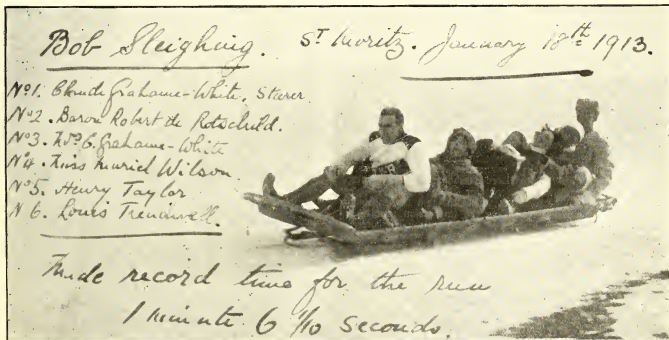 Bob Sleighing. St Moritz. January 18th 1913.
No 1. Claude Grahame-White, Steerer.
No 2. Baron Robert de Rotschild.
No 3. Mrs C. Grahame-White
No 4. Miss Muriel Wilson
No 5. Henry Taylor
N 6. Louis
Made record time for the run
1 minute 6 1/10 Seconds.